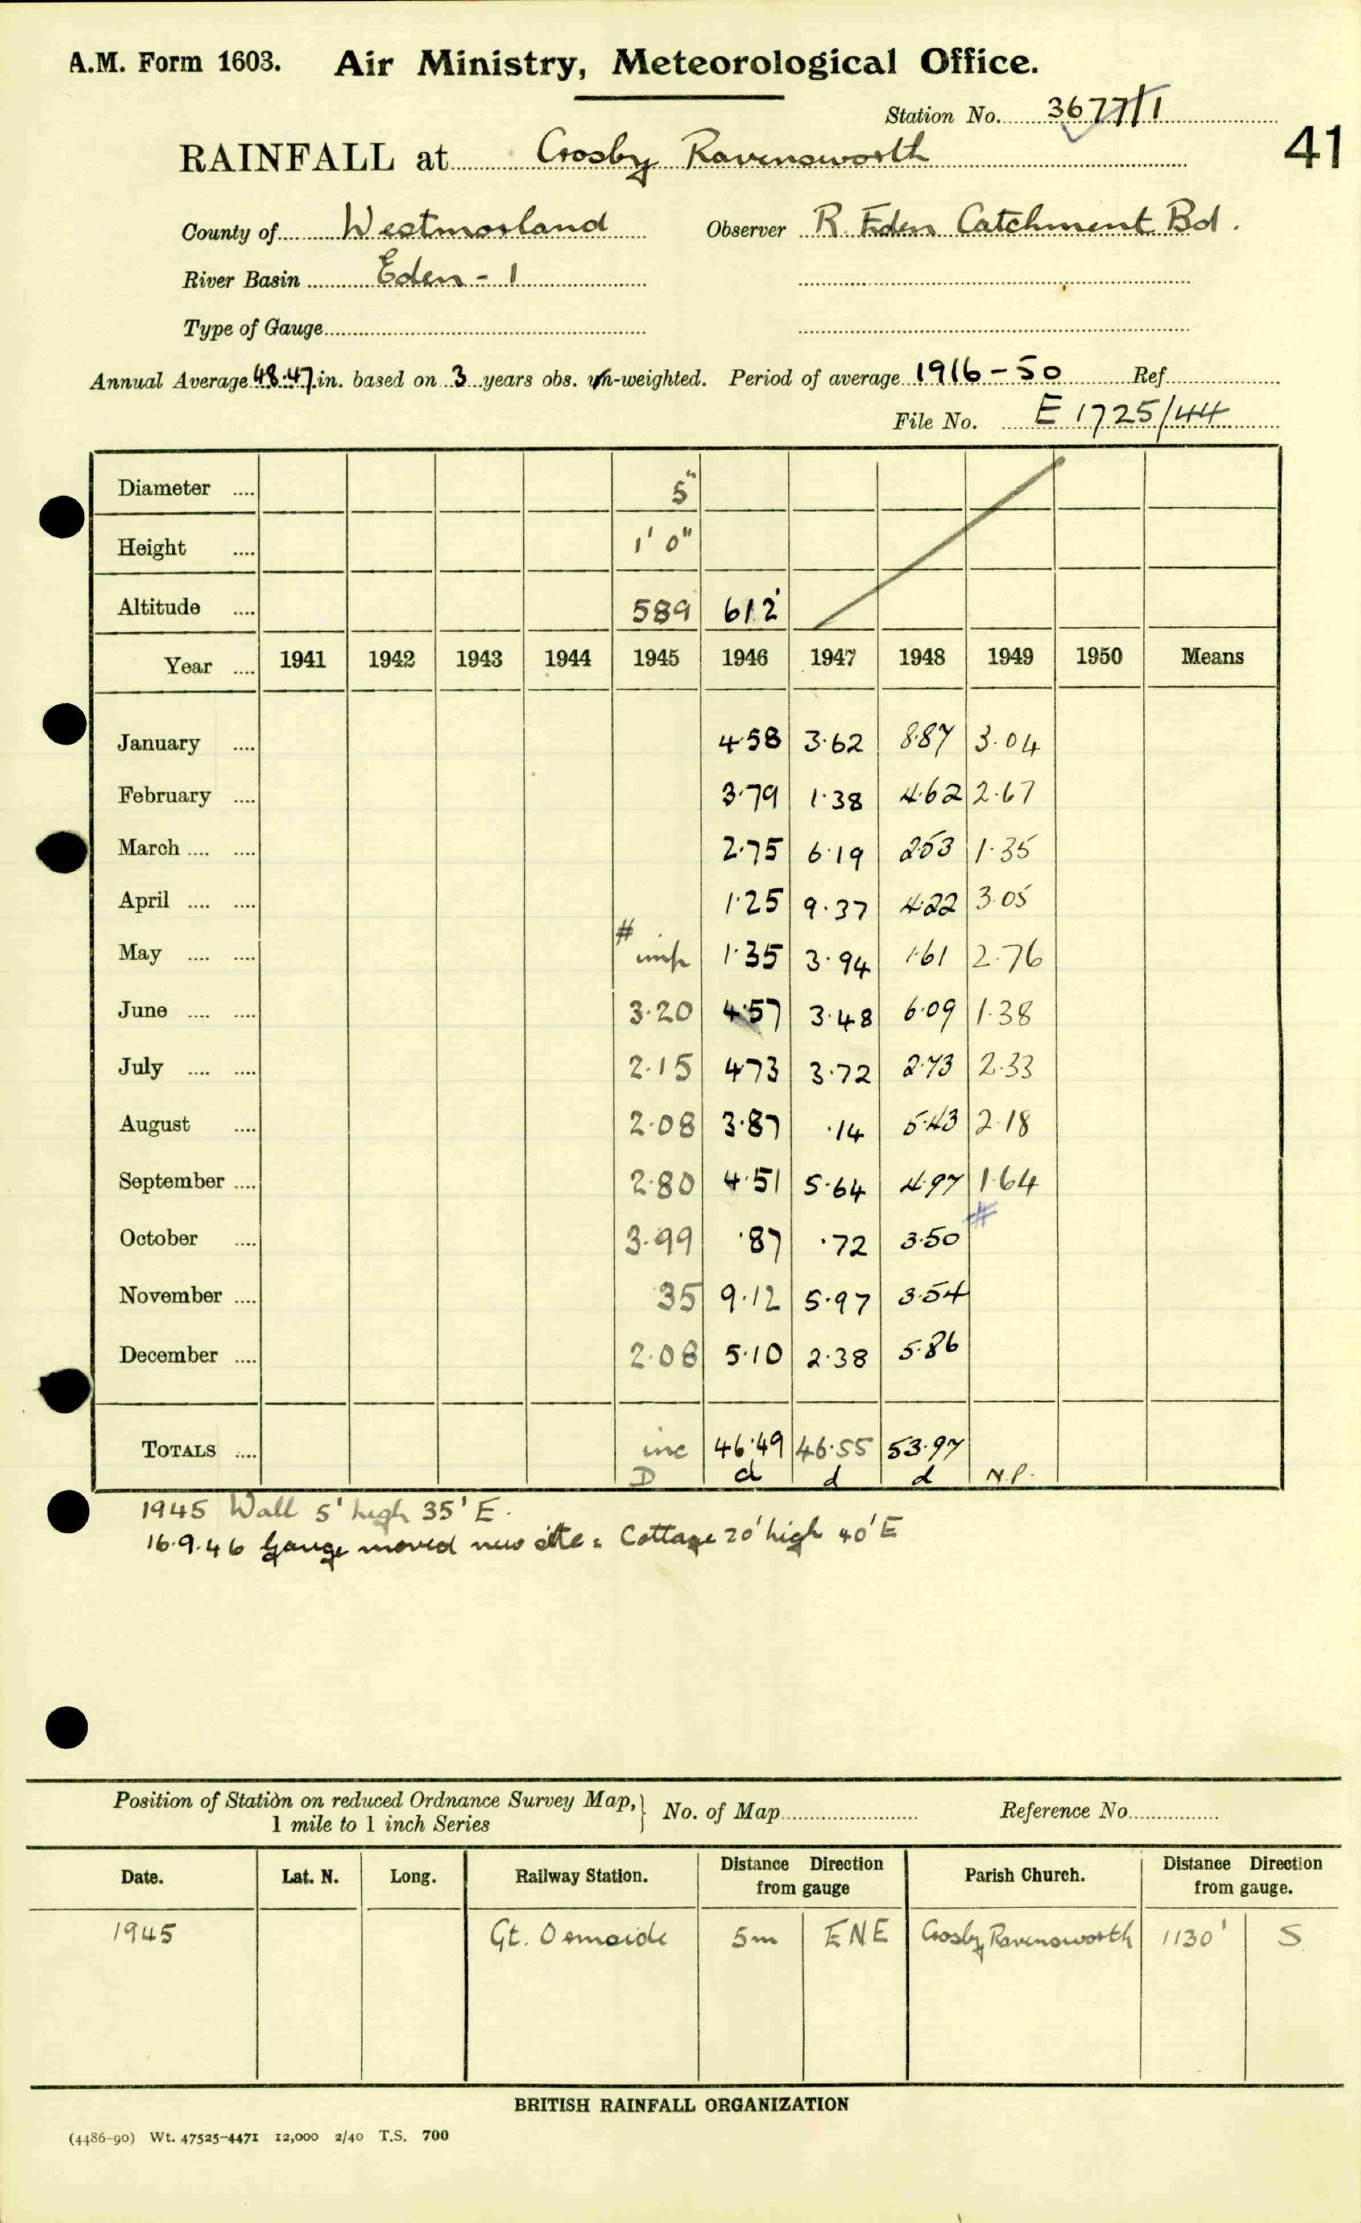 A.M. Form 1603. Air Ministry, Meteorological Office.
Station No. 3677/1
41
RAINFALL at Crosby Ravensworth
County of Westmorland Observer R. Eden Catchment Bd.
River Basin Eden - 1
Type of Gauge
Annual Average 48.47 in. based on 3 years obs. un-weighted. Period of average 1916-50 Ref
File No. E 1725/44
Diameter 5"
Height 1' 0"
Altitude 589 612'
Year 1941 1942 1943 1944 1945 1946 1947 1948 1949 1950 Means
January 4.58 3.62 8.87 3.04
February 3.79 1.38 4.62 2.67
March 2.75 6.19 2.53 1.35
April 1.25 9.37 4.22 3.05
May # imp 1.35 3.94 1.61 2.76
June 3.20 4.57 3.48 6.09 1.38
July 2.15 4.73 3.72 2.73 2.33
August 2.08 3.87 .14 5.43 2.18
September 2.80 4.51 5.64 4.97 1.64
October 3.99 .87 .72 3.50 #
November 35 9.12 5.97 3.54
December 2.08 5.10 2.38 5.86
TOTALS inc 46.49 46.55 53.97
D d d d N.P.
1945 Wall 5' high 35' E.
16.9.46 Gauge moved new site: Cottage 20' high 40' E
Position of Station on reduced Ordnance Survey Map, } No. of Map Reference No.
1 mile to 1 inch Series
Date. Lat. N. Long. Railway Station. Distance Direction from gauge Parish Church. Distance Direction from gauge.
1945 Gt. Ormside 5m ENE Crosby Ravensworth 1130' S
BRITISH RAINFALL ORGANIZATION
(4486-90) Wt. 47525-4471 12,000 2/40 T.S. 700